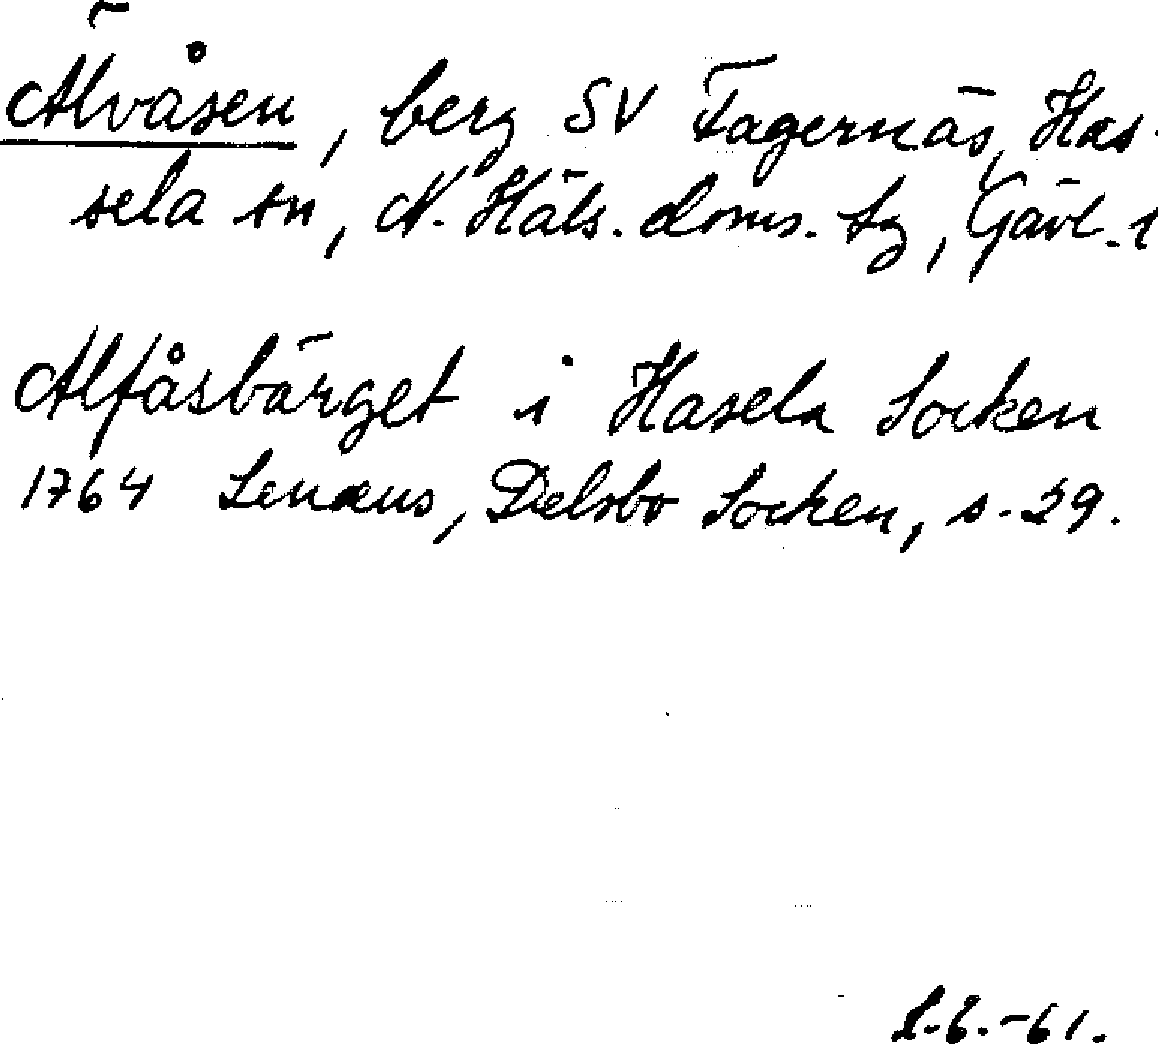 Älvåsen, berg SV Fagernäs, Has-
sela sn, N. Häls. doms. tg, Gävl. l
Alfåsbärget i Hasela Socken
1764 Lenæus, Delsbo Socken, s. 29.
L.E.-61.